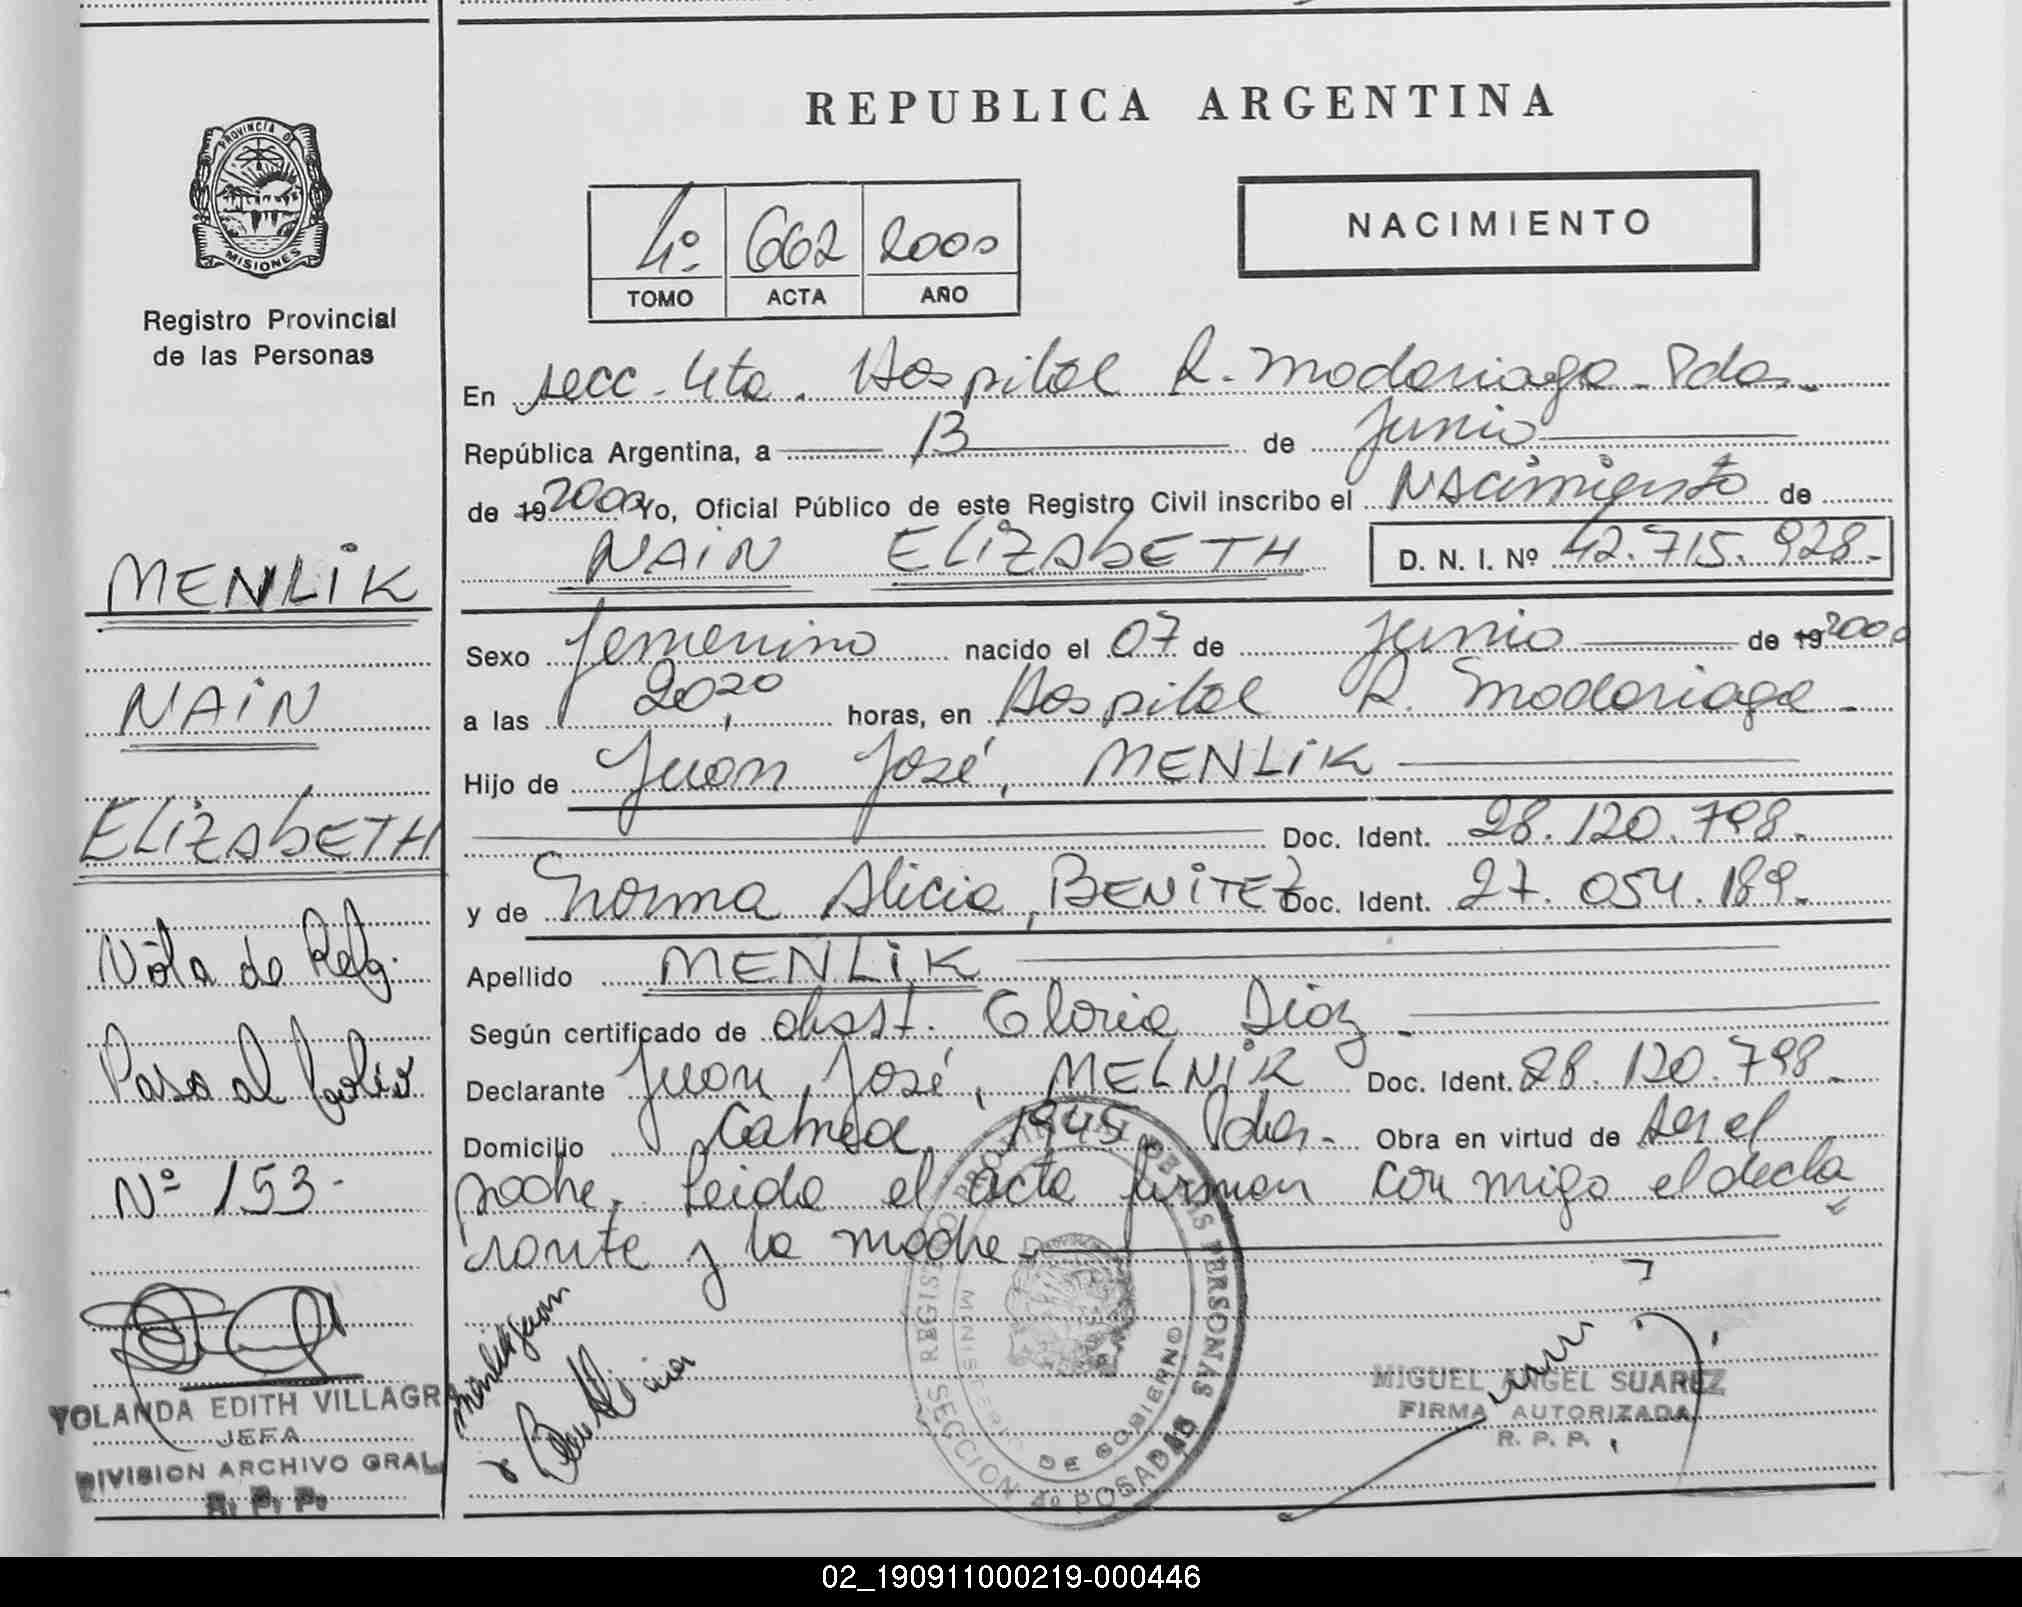 REPUBLICA ARGENTINA
PROVINCIA DE
MISIONES
Registro Provincial
de las Personas
4º
662
2000
TOMO
ACTA
AÑO
NACIMIENTO
En secc. 4ta. Hospital R. Madariaga - Pdas.
República Argentina, a 13 de Junio
de 19 2000 Yo, Oficial Público de este Registro Civil inscribo el NAcimiento de
NAiN ELiZAbETH D. N. I. Nº 42.715.928.-
Sexo femenino nacido el 07 de Junio de 19 2000
a las 20,20 horas, en Hospital R. Madariaga.
Hijo de Juan José, MENLiK
Doc. Ident. 28.120.798.
y de Norma Alicia, BENiTEZ Doc. Ident. 27.054.189.
Apellido MENLiK
Según certificado de obsst. Gloria Diaz.
Declarante Juan José, MELNiK Doc. Ident. 28.120.798.
Domicilio Cabred 1945 Pdas. Obra en virtud de ser el
padre. Leida el acta firman con migo el decla
rante y la madre.
MENLiK
NAiN
ELiZAbETH
Nota de Refg.
Pasa al folio
Nº 153-
YOLANDA EDITH VILLAGRA
JEFA
DIVISION ARCHIVO GRAL.
R. P. P.
Menlik Juan
REGISTRO PROVINCIAL DE LAS PERSONAS
MINISTERIO DE GOBIERNO
SECCION 4º POSADAS
MIGUEL ANGEL SUAREZ
FIRMA AUTORIZADA
R. P. P.
02_190911000219-000446